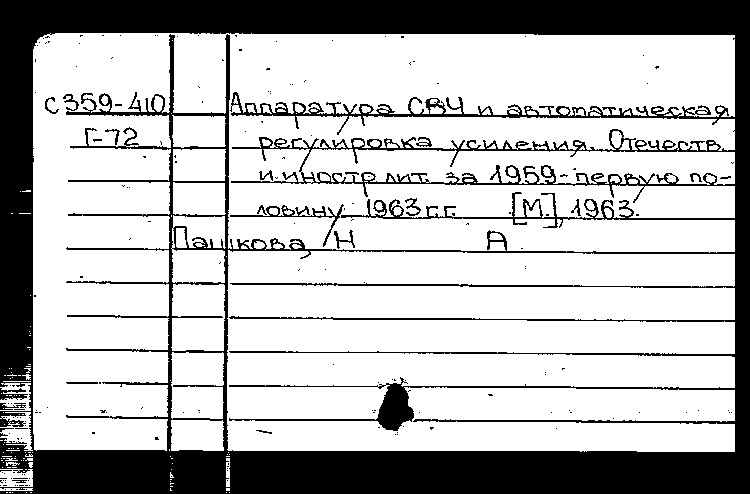 С359-410 Аппаратура СВЧ и автоматическая
Г-72 регулировка усиления. Отечеств.
и иностр лит. за 1959-первую по-
ловину 1963 г.г. [М.], 1963.
Пашкова, Н А